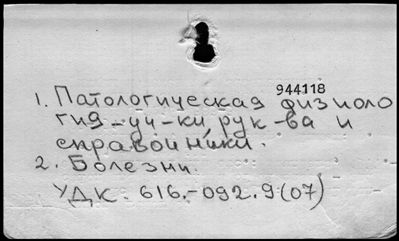 944118
1. Патологическая физиоло
гия-уч-ки рук-ва и
справочники.
2. Болезни.
УДК. 616.-092.9(07)